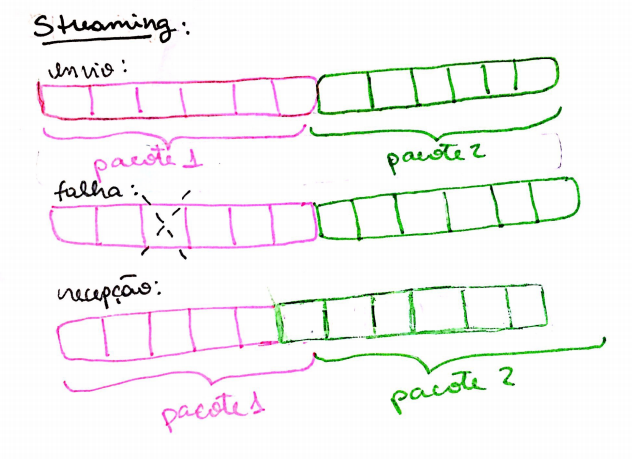 Streaming:
envio:
pacote 1 pacote 2
falha:
recepção:
pacote 1 pacote 2